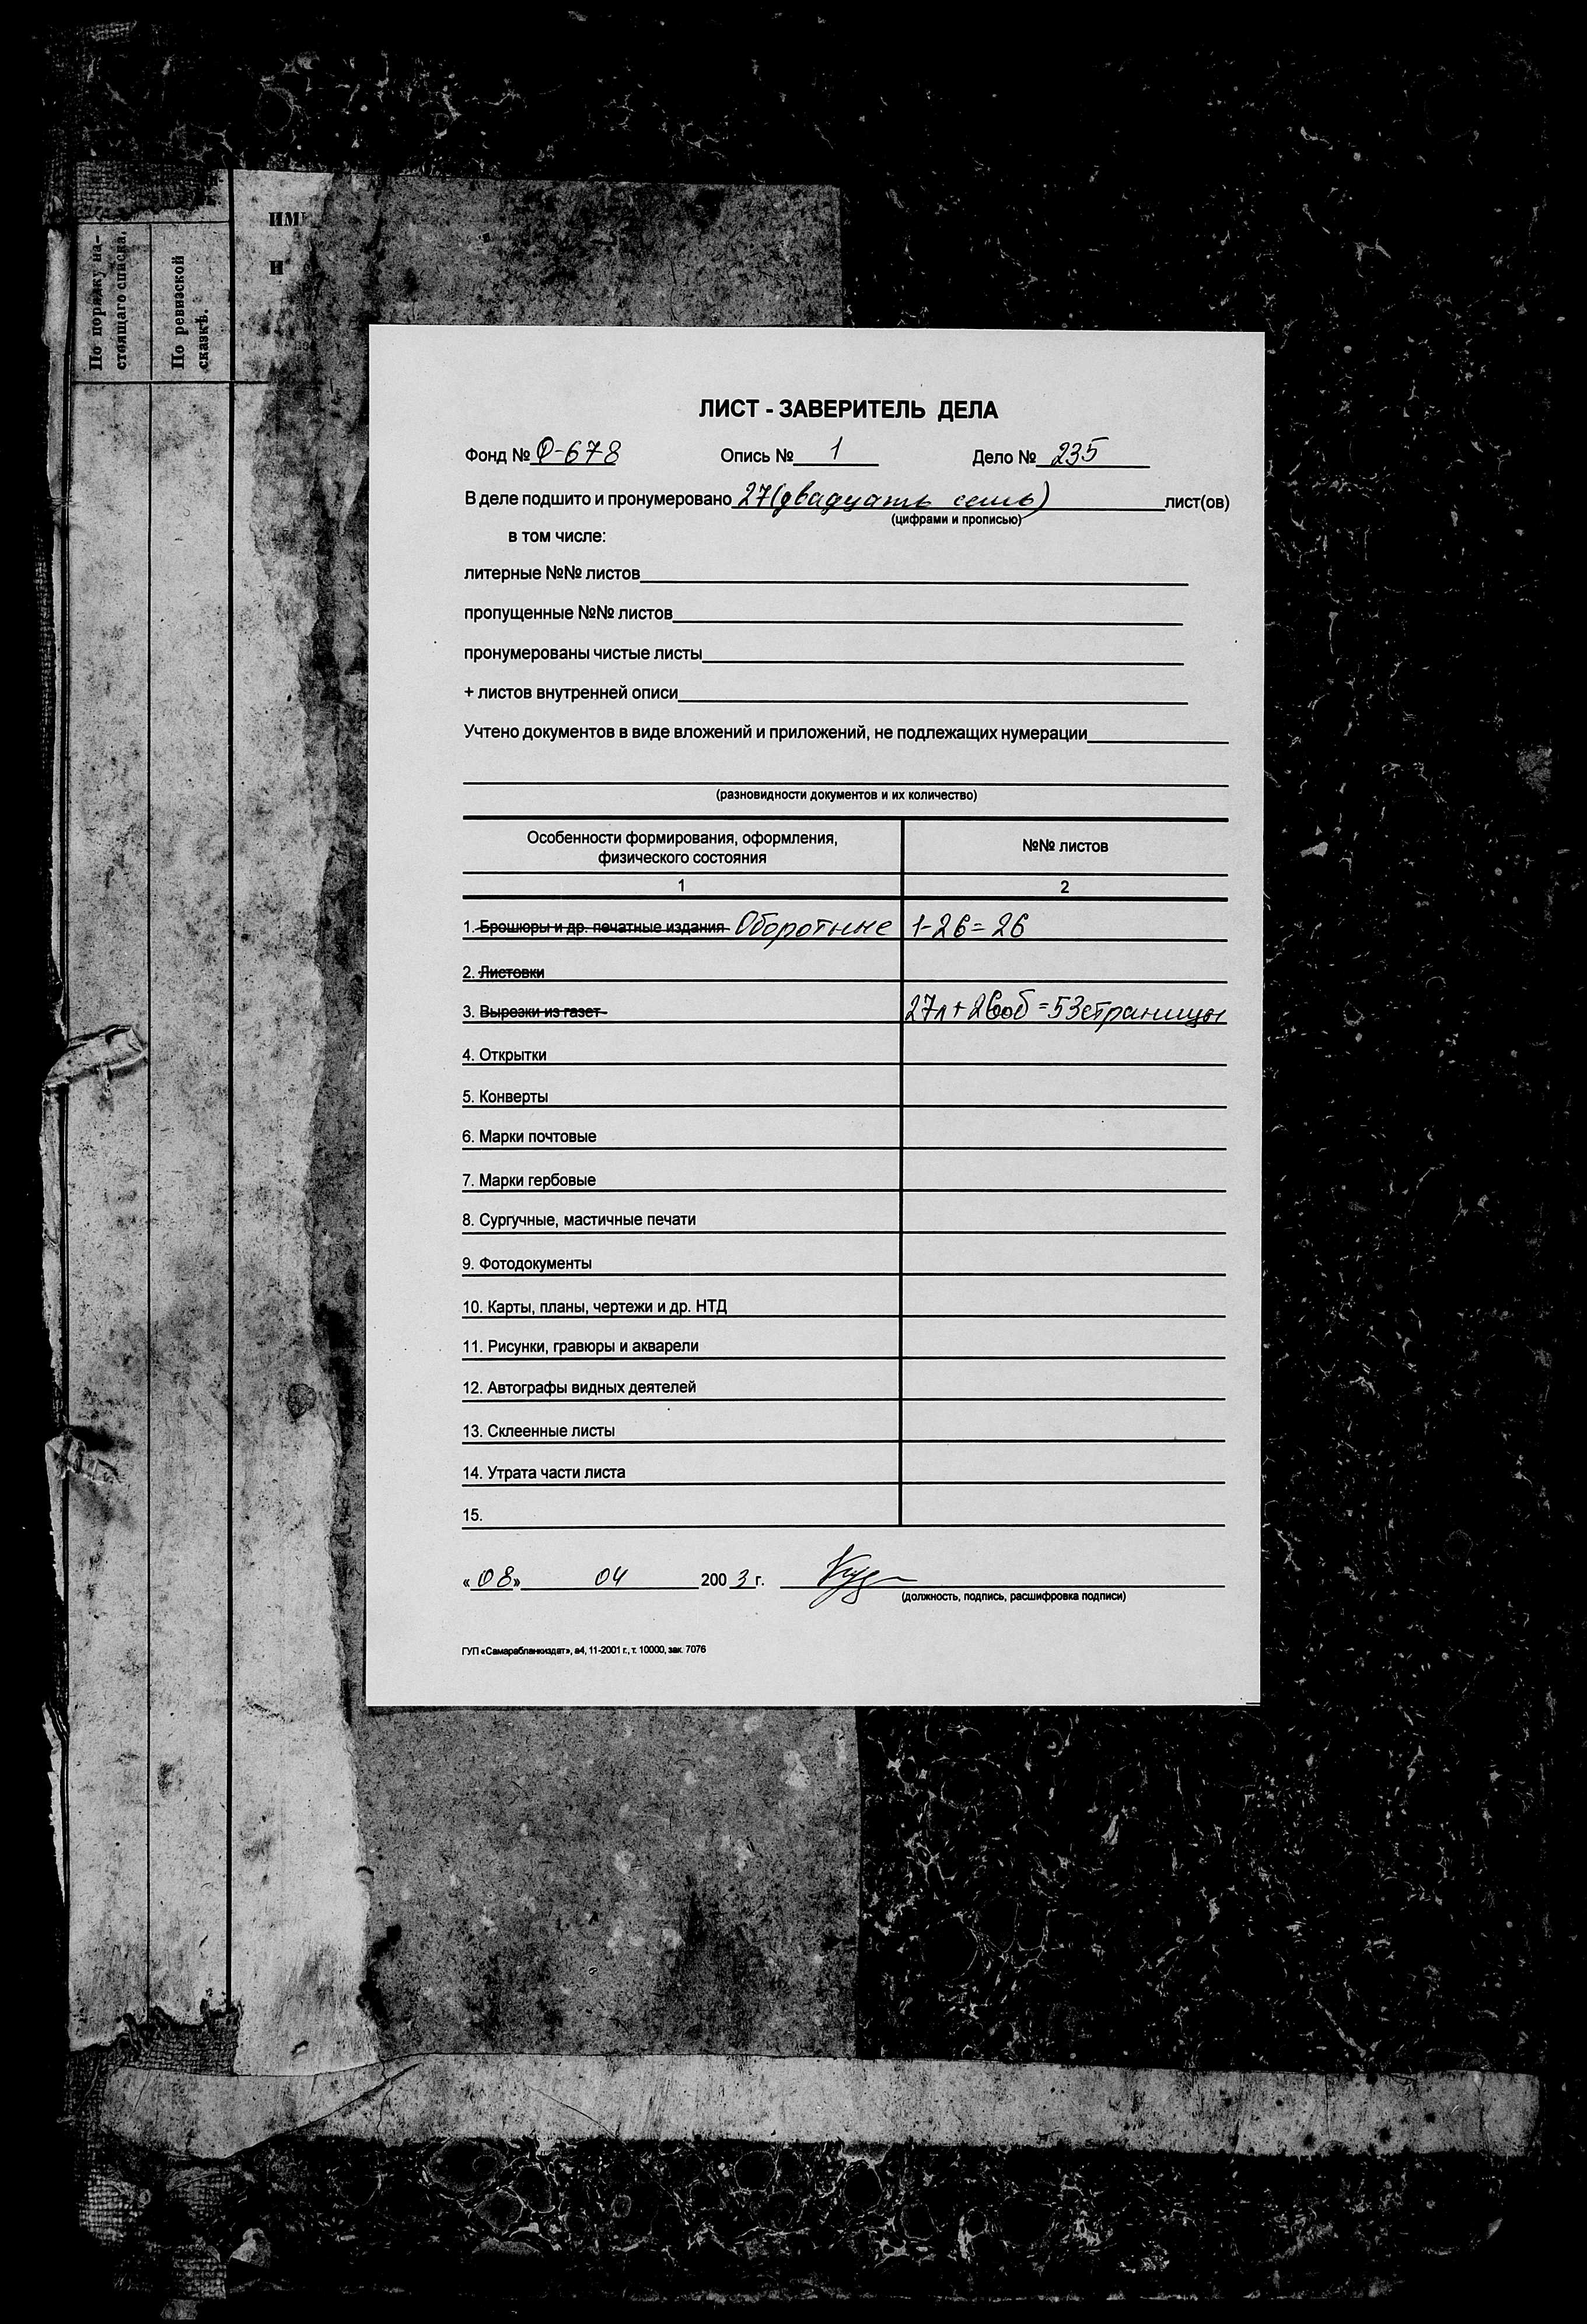 По порядку на-
стоящаго списка.
По ревизской
сказкѣ.
ИМ
И
ЛИСТ - ЗАВЕРИТЕЛЬ ДЕЛА
Фонд № Ф-678 Опись № 1 Дело № 235
В деле подшито и пронумеровано 27 (двадцать семь) лист(ов)
(цифрами и прописью)
в том числе:
литерные №№ листов
пропущенные №№ листов
пронумерованы чистые листы
+ листов внутренней описи
Учтено документов в виде вложений и приложений, не подлежащих нумерации
(разновидности документов и их количество)
Особенности формирования, оформления,
физического состояния
№№ листов
1 2
1. Брошюры и др. печатные издания Оборотные 1-26=26
2. Листовки
3. Вырезки из газет 27л+26об=53страницы
4. Открытки
5. Конверты
6. Марки почтовые
7. Марки гербовые
8. Сургучные, мастичные печати
9. Фотодокументы
10. Карты, планы, чертежи и др. НТД
11. Рисунки, гравюры и акварели
12. Автографы видных деятелей
13. Склеенные листы
14. Утрата части листа
15.
«08» 04 2003 г.
(должность, подпись, расшифровка подписи)
ГУП «Самарабланкиздат», а4, 11-2001 г., т. 10000, зак. 7076